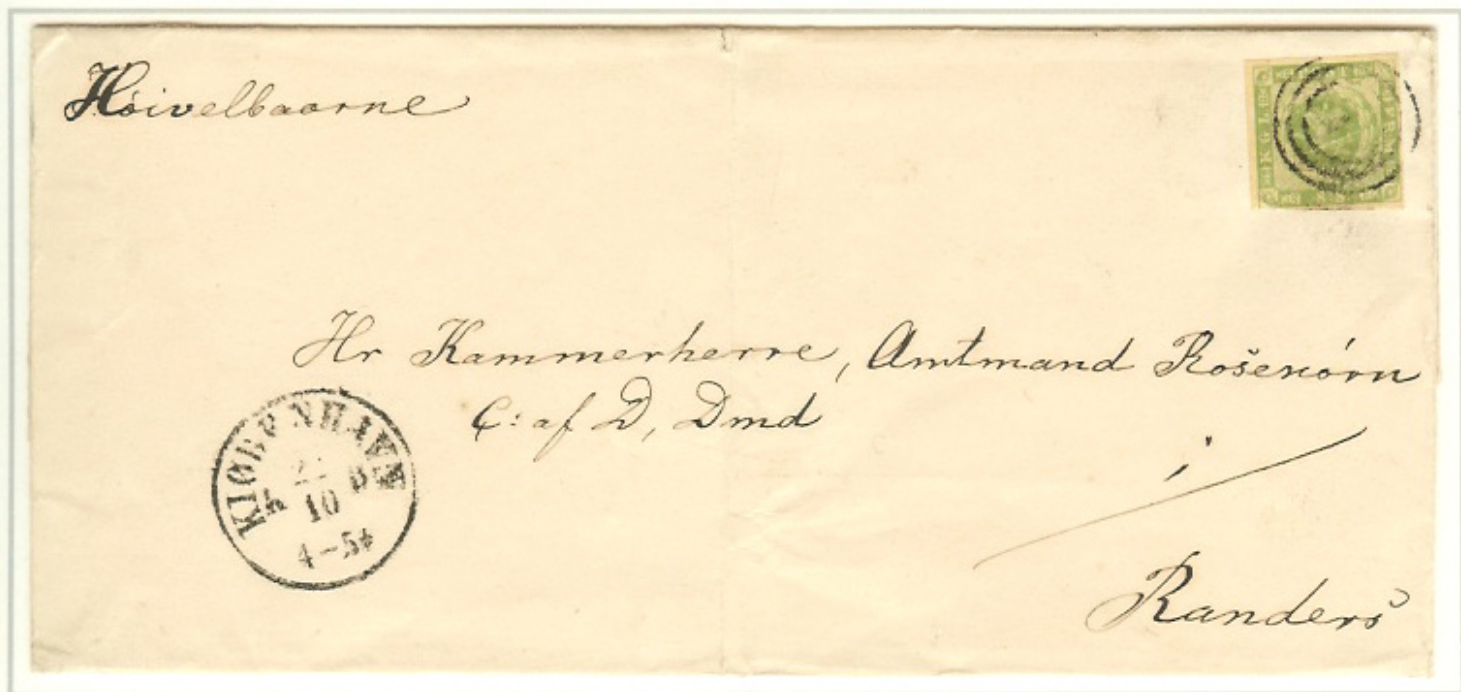 Høivelbaarne
Hr Kammerherre, Amtmand Rosenörn
C: af D, Dmd
i
Randers
KIØBENHAVN
K B
10
4-5